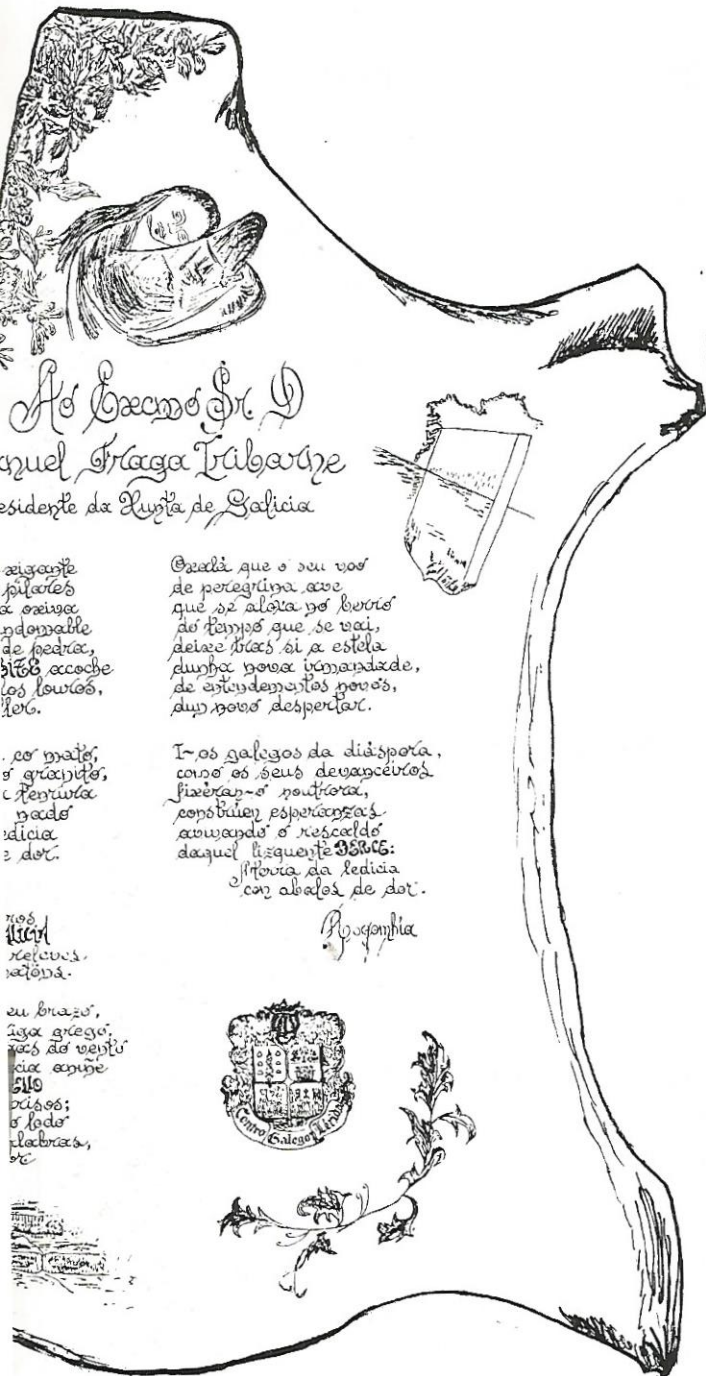 Ao Excmo Sr. D
nuel Fraga Iribarne
esidente da Xunta de Galicia
xigante
pilares
a oxiva
ndomable
de pedra,
acoche
los louros,
ller.
co mato,
o granito,
tenrura
nado
edicia
e dor.
ros
releves.
eu brazo,
iga grego.
zas do vento
cia aniñe
orisos;
o lodo
alabras,
Oxalá que o seu voo
de peregrina ave
que se aloxa no berrio
do tempo que se vai,
deixe tras si a estela
dunha nova irmandade,
de entendementos novos,
dun novo despertar.
I-os galegos da diáspora,
como os seus devanceiros
fixéran-o noutrora,
constrúen esperanzas
auwando o rescaldo
daquel lizquente BERCE:
Historia da ledicia
con abalos de dor.
Centro Galego Lérida